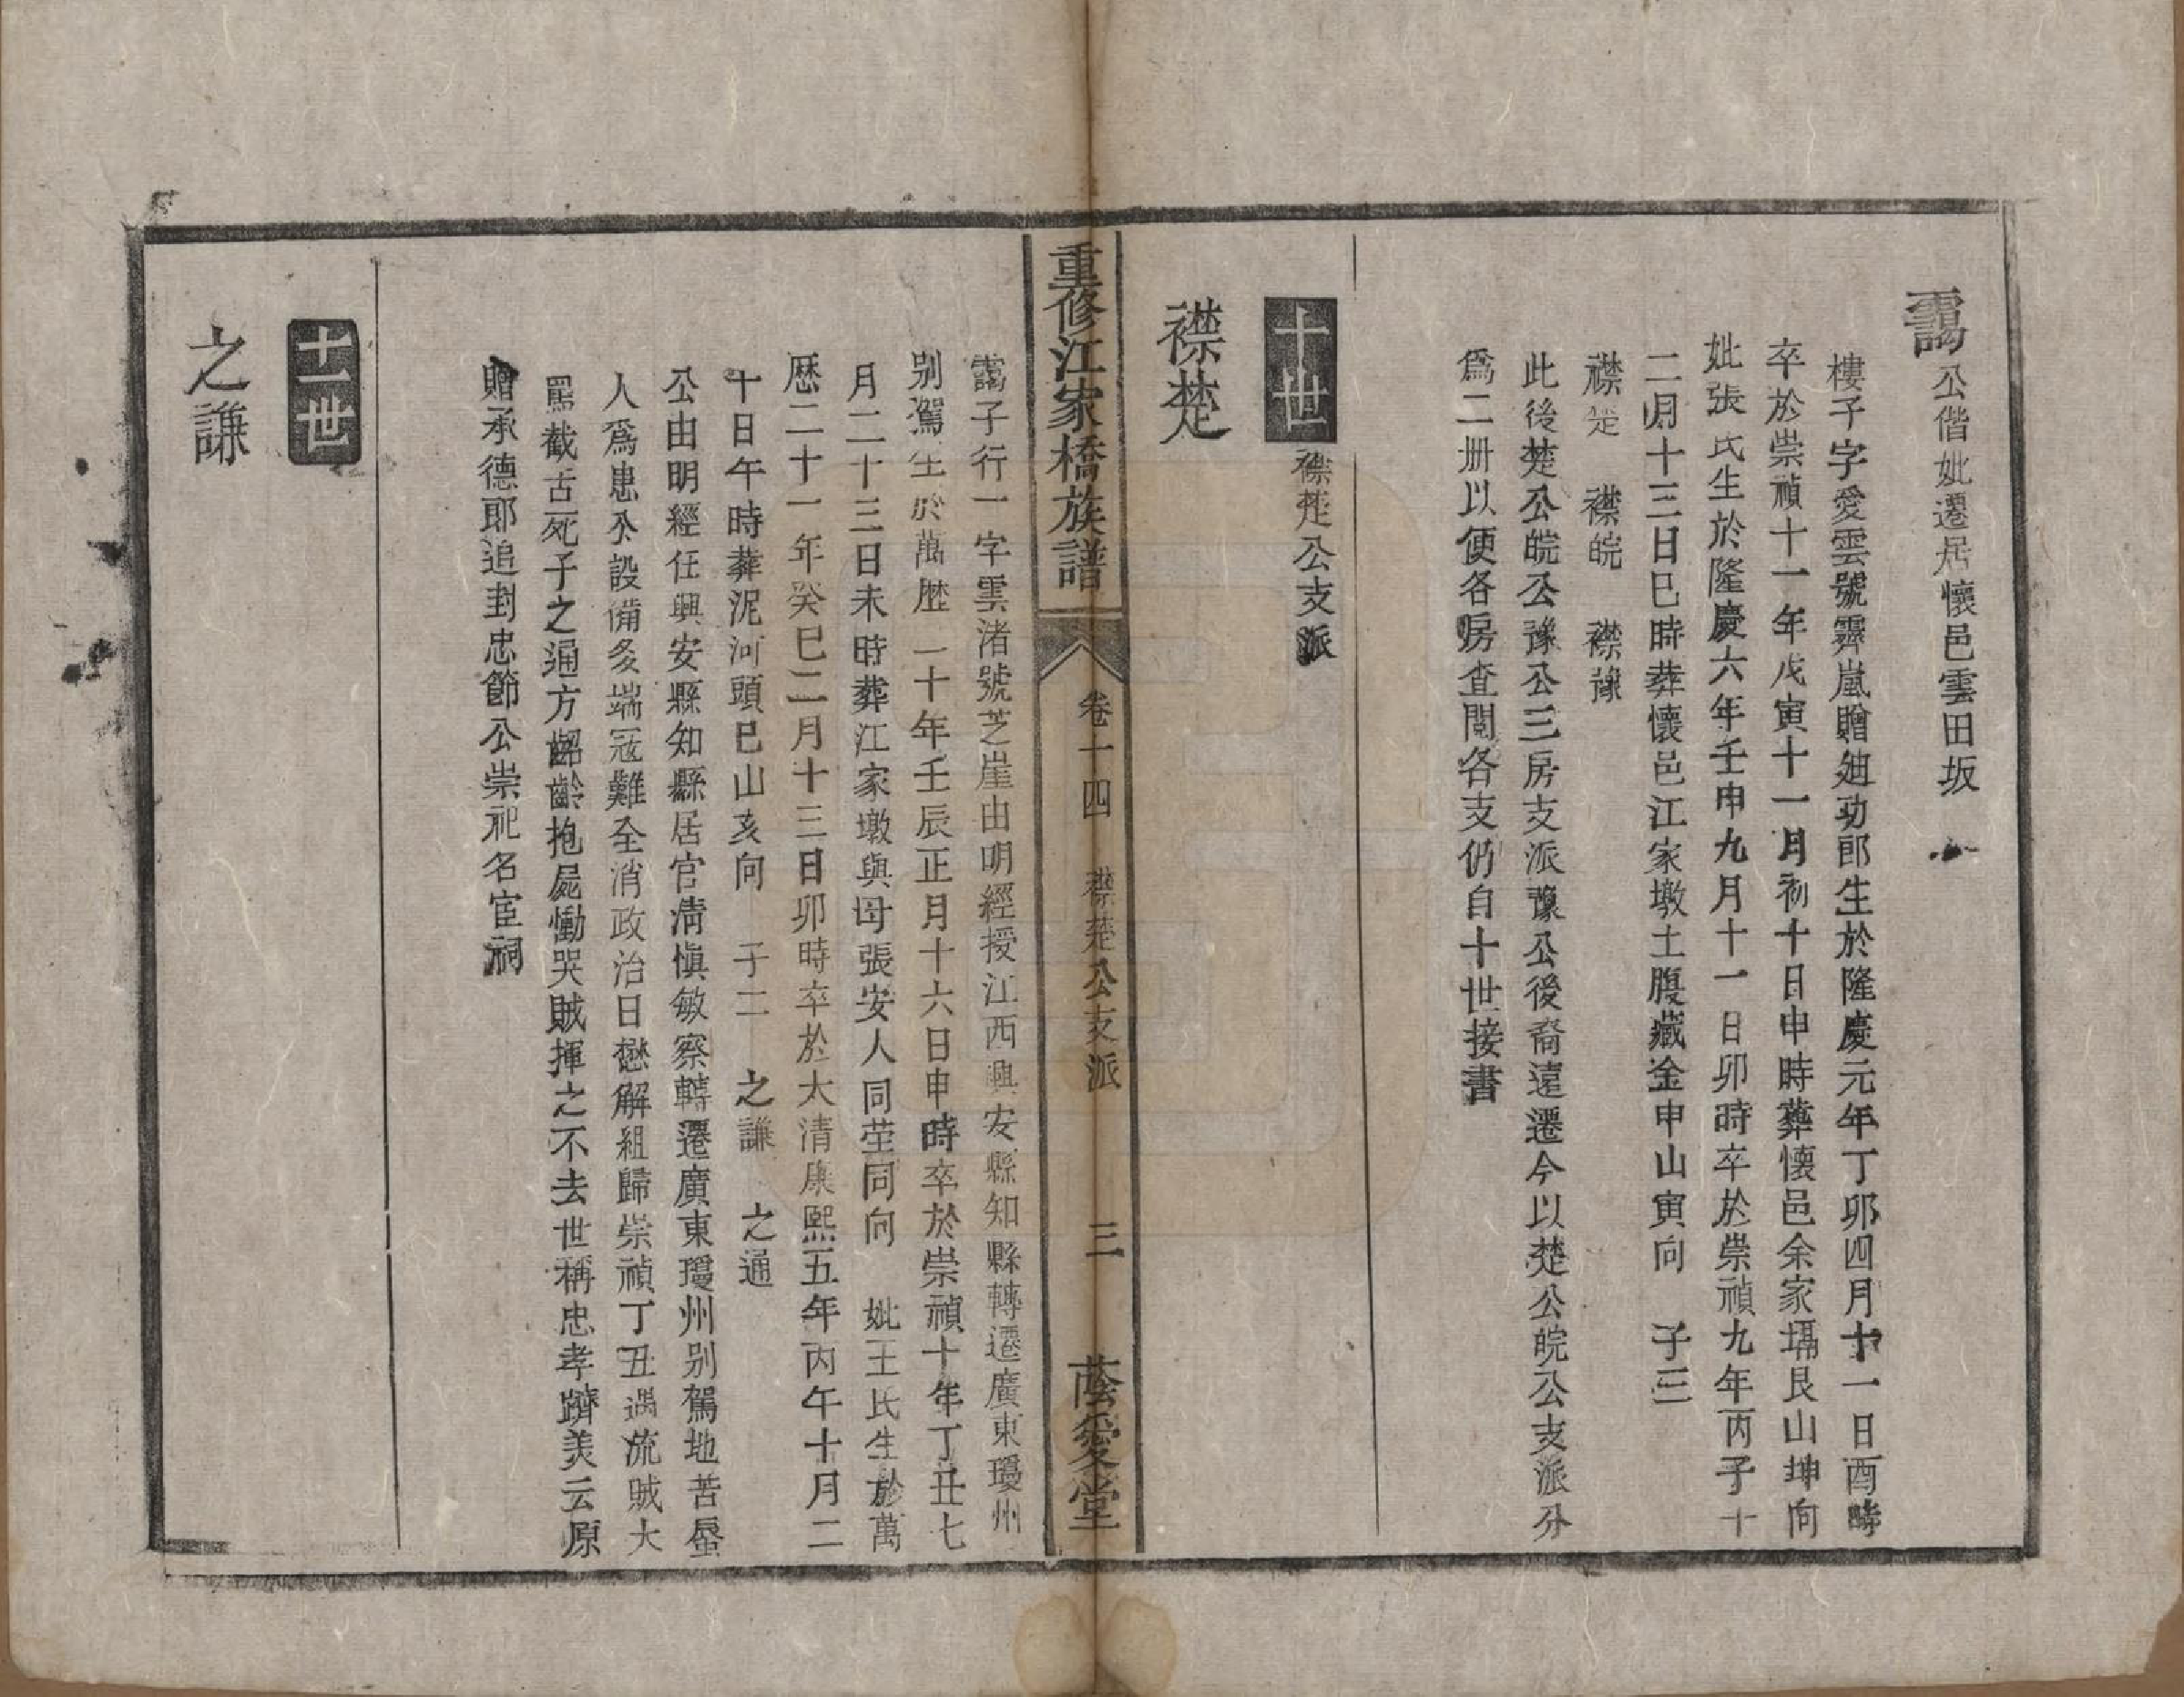 靄公偕妣遷居懷邑雲田坂
樓子字愛雲號霽嵐贈廸功郎生於隆慶元年丁卯四月十一日酉時
卒於崇禎十一年戊寅十一月初十日申時葬懷邑余家塥艮山坤向
妣張氏生於隆慶六年壬申九月十一日卯時卒於崇禎九年丙子十
二月十三日巳時葬懷邑江家墩土腹藏金申山寅向 子三
襟楚 襟皖 襟豫
此後楚公皖公豫公三房支派豫公後裔遠遷今以楚公皖公支派分
爲二册以便各房查閱各支仍自十世接書
十世 襟楚公支派
襟楚
重修江家橋族譜 卷十四 襟楚公支派 三 蔭愛堂
靄子行一字雲渚號芝崖由明經授江西興安縣知縣轉遷廣東瓊州
别駕生於萬歷二十年壬辰正月十六日申時卒於崇禎十年丁丑七
月二十三日未時葬江家墩與母張安人同塋同向 妣王氏生於萬
歷二十一年癸巳二月十三日卯時卒於大清康熙五年丙午十月二
十日午時葬泥河頭巳山亥向 子二 之謙 之通
公由明經任興安縣知縣居官清愼敏察轉遷廣東瓊州别駕地苦蜃
人爲患公設備多端冦難全消政治日懋解組歸崇禎丁丑遇流賊大
罵截舌死子之通方齠齡抱屍慟哭賊揮之不去世稱忠孝躋美云原
贈承德郎追封忠節公崇祀名宦祠
十一世
之謙